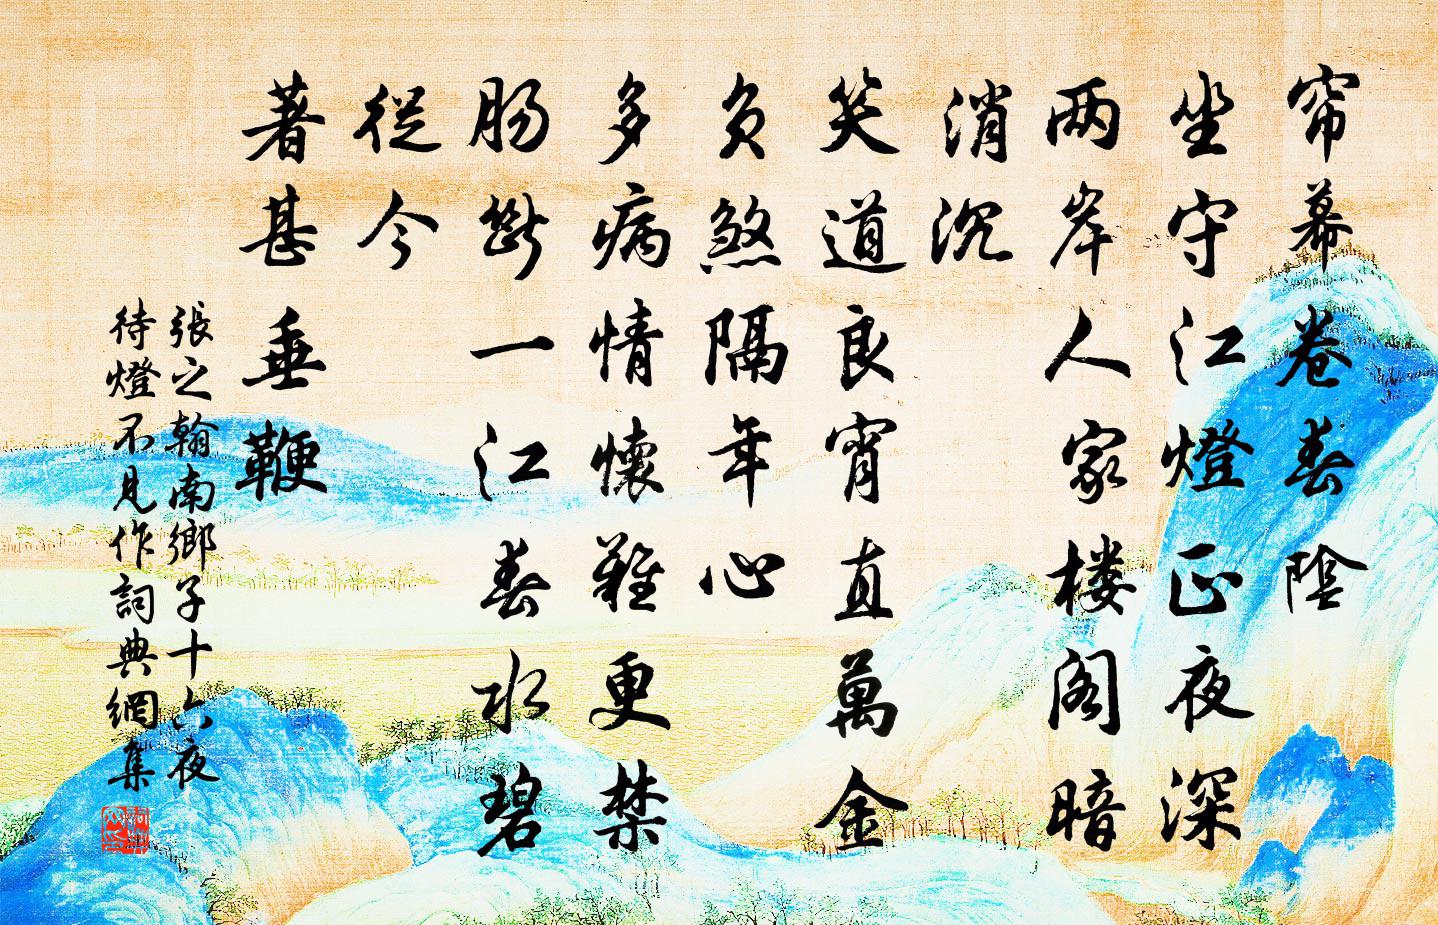 帘幕卷春陰
坐守江燈正夜深
两岸人家楼阁暗
消沉
笑道良宵直萬金
负煞隔年心
多病情懷難更禁
肠斷一江春水碧
從今
著甚垂鞭
張之翰南鄉子十六夜
待燈不見作詞典網集